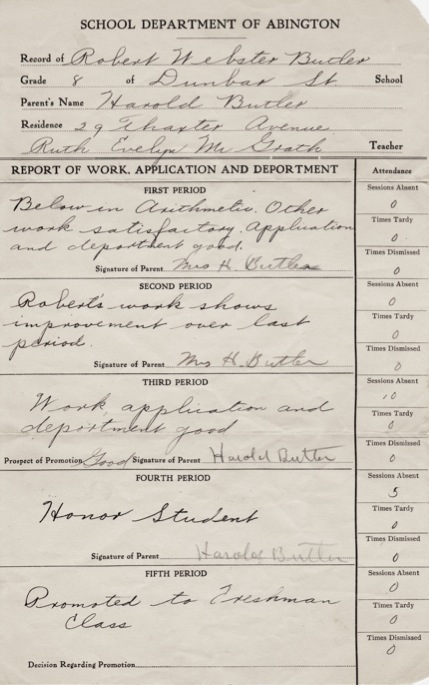 SCHOOL DEPARTMENT OF ABINGTON
Record of Robert Webster Butler
Grade 8 of Dunbar St. School
Parent's Name Harold Butler
Residence 29 Thaxter Avenue
Ruth Evelyn Mc Grath Teacher
REPORT OF WORK, APPLICATION AND DEPORTMENT Attendance
FIRST PERIOD Sessions Absent
Below in Arithmetic. Other 0
work satisfactory. Application Times Tardy
and deportment good. 0
Times Dismissed
Signature of Parent Mrs H. Butler 0
SECOND PERIOD Sessions Absent
Robert's work shows 0
improvement over last Times Tardy
period. 0
Times Dismissed
Signature of Parent Mrs H. Butler 0
THIRD PERIOD Sessions Absent
Work, application and
deportment good Times Tardy
0
Times Dismissed
Prospect of Promotion Good Signature of Parent Harold Butler 0
FOURTH PERIOD Sessions Absent
Honor Student 5
Times Tardy
0
Times Dismissed
Signature of Parent Harold Butler 0
FIFTH PERIOD Sessions Absent
Promoted to Freshman 0
Class Times Tardy
0
Times Dismissed
0
Decision Regarding Promotion